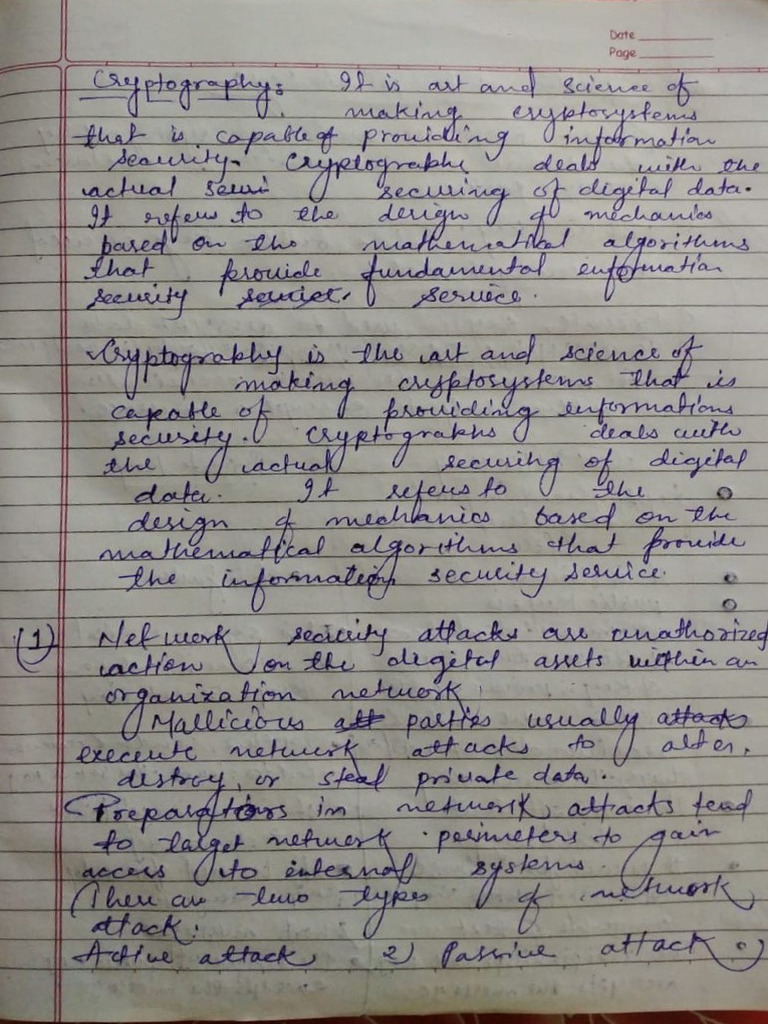 Date
Page
Cryptography: It is art and science of
making cryptosystems
that is capable of providing information
security. Cryptography deals with the
actual securi securing of digital data.
It refers to the design of mechanics
based on the mathematical algorithms
that provide fundamental information
security service. service.
Cryptography is the art and science of
making cryptosystems that is
capable of providing informations
security. Cryptography deals with
the actual securing of digital
data. It refers to the
design of mechanics based on the
mathematical algorithms that provide
the information security service.
(1) Network security attacks are unathorized
action on the digital assets within an
organization network
Mallicious att parties usually attack
execute network attacks to alter,
destroy, or steal private data.
in network attacks tend
to target network perimeters to gain
access to internal systems.
There are two types of network
attack:
Active attack 2) Passive attack